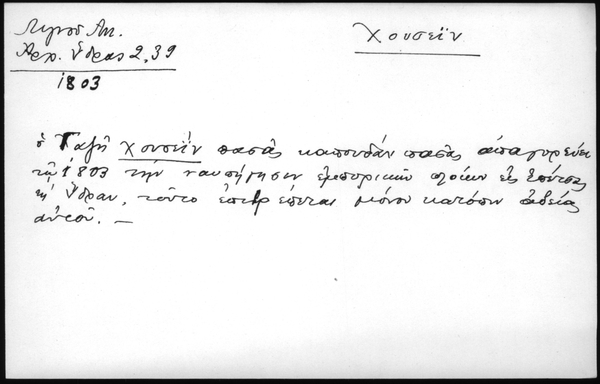 Λιγνοῦ Αν.
Αρχ. Ὕδρας 2, 39
1803
Χουσεΐν
ὁ Γαζῆ Χουσεΐν πασᾶς καπουδάν πασᾶς ἀπαγορεύει
τῷ 1803 τὴν ναυπήγησιν ἐμπορικῶν πλοίων εἰς Σπέτσας
ἢ Ὕδραν, τοῦτο ἐπιτρέπεται μόνον κατόπιν ἀδείας
αὐτοῦ. —